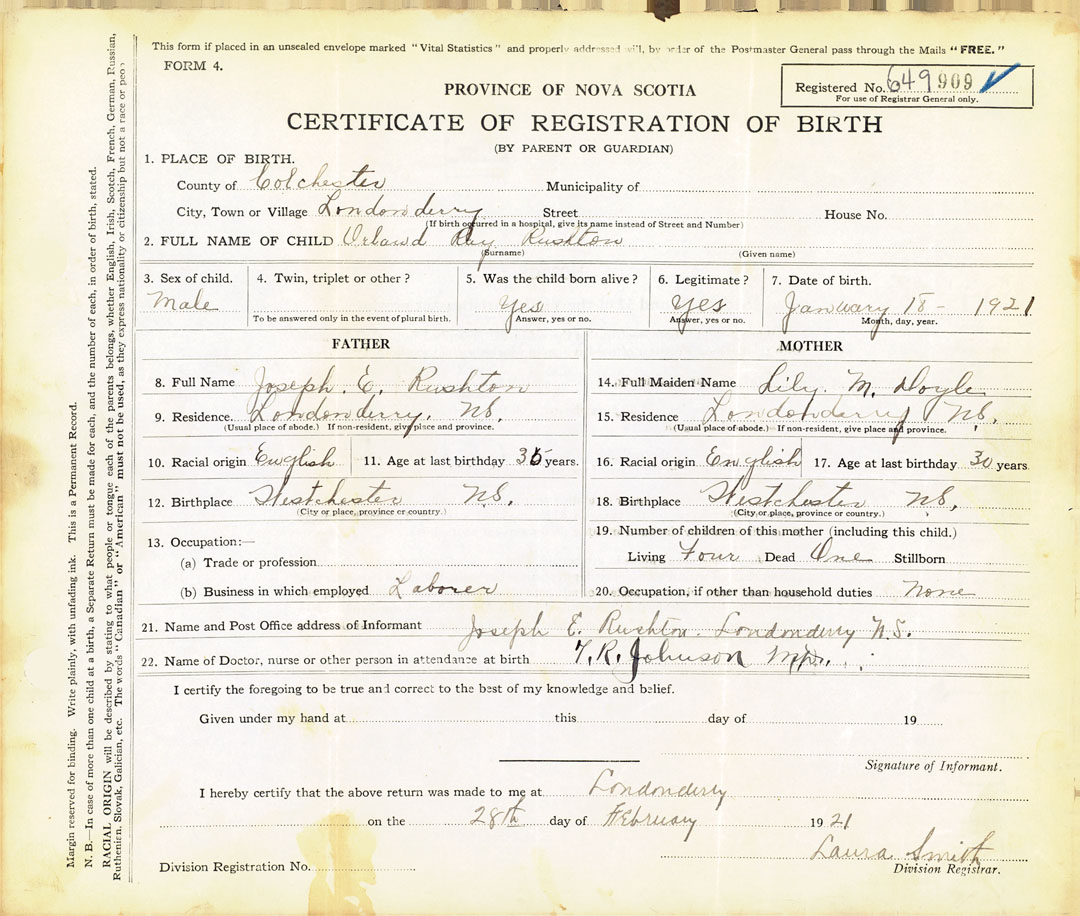 This form if placed in an unsealed envelope marked "Vital Statistics" and properly addressed will, by order of the Postmaster General pass through the Mails "FREE."
FORM 4.
Registered No. 649909
For use of Registrar General only.
PROVINCE OF NOVA SCOTIA
CERTIFICATE OF REGISTRATION OF BIRTH
(BY PARENT OR GUARDIAN)
1. PLACE OF BIRTH.
County of Colchester Municipality of
City, Town or Village Londonderry Street House No.
(If birth occurred in a hospital, give its name instead of Street and Number)
2. FULL NAME OF CHILD Orland Ray Rushton
(Surname) (Given name)
3. Sex of child. 4. Twin, triplet or other? 5. Was the child born alive? 6. Legitimate? 7. Date of birth.
Male Yes Yes January 18 - 1921
To be answered only in the event of plural birth. Answer, yes or no. Answer, yes or no. Month, day, year.
FATHER MOTHER
8. Full Name Joseph. E. Rushton 14. Full Maiden Name Lily. M. Doyle
9. Residence. Londonderry, NS. 15. Residence Londonderry NS.
(Usual place of abode.) If non-resident, give place and province. (Usual place of abode.) If non-resident, give place and province.
10. Racial origin English 11. Age at last birthday 35 years. 16. Racial origin English 17. Age at last birthday 30 years.
12. Birthplace Westchester NS. 18. Birthplace Westchester NS.
(City or place, province or country.) (City or place, province or country.)
19. Number of children of this mother (including this child.)
13. Occupation:—
Living Four Dead One Stillborn
(a) Trade or profession
(b) Business in which employed Laborer 20. Occupation, if other than household duties None
21. Name and Post Office address of Informant Joseph E. Rushton. Londonderry N.S.
22. Name of Doctor, nurse or other person in attendance at birth T.R. Johnson
I certify the foregoing to be true and correct to the best of my knowledge and belief.
Given under my hand at this day of 19
Signature of Informant.
I hereby certify that the above return was made to me at Londonderry
on the 28th day of February 1921
Laura Smith
Division Registration No. Division Registrar.
Margin reserved for binding. Write plainly, with unfading ink. This is a Permanent Record.
N. B.—In case of more than one child at a birth, a Separate Return must be made for each, and the number of each, in order of birth, stated.
RACIAL ORIGIN will be described by stating to what people or tongue each of the parents belongs, whether English, Irish, Scotch, French, German, Russian,
Ruthenian, Slovak, Galician, etc. The words "Canadian" or "American" must not be used, as they express nationality or citizenship but not a race or peo